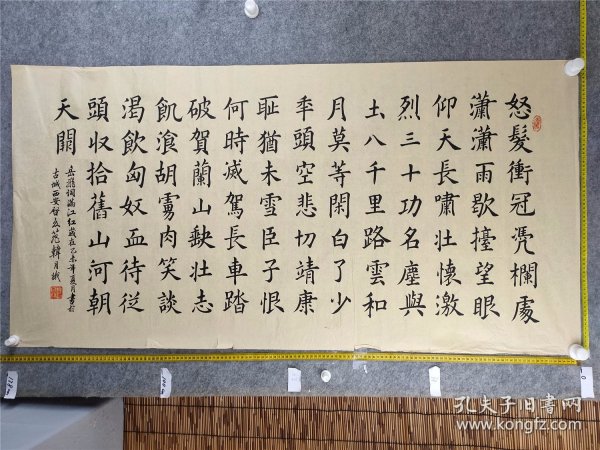 怒髮衝冠凴欄處
瀟瀟雨歇擡望眼
仰天長嘯壯懷激
烈三十功名塵與
土八千里路雲和
月莫等閑白了少
秊頭空悲切靖康
耻猶未雪臣子恨
何時滅駕長車踏
破賀蘭山缺壯志
飢湌胡虜肉笑談
渴飲匈奴血待從
頭收拾舊山河朝
天闕
岳飛詞滿江紅歲在己未年夏月書於
古城西安
孔夫子旧书网
www.kongfz.com